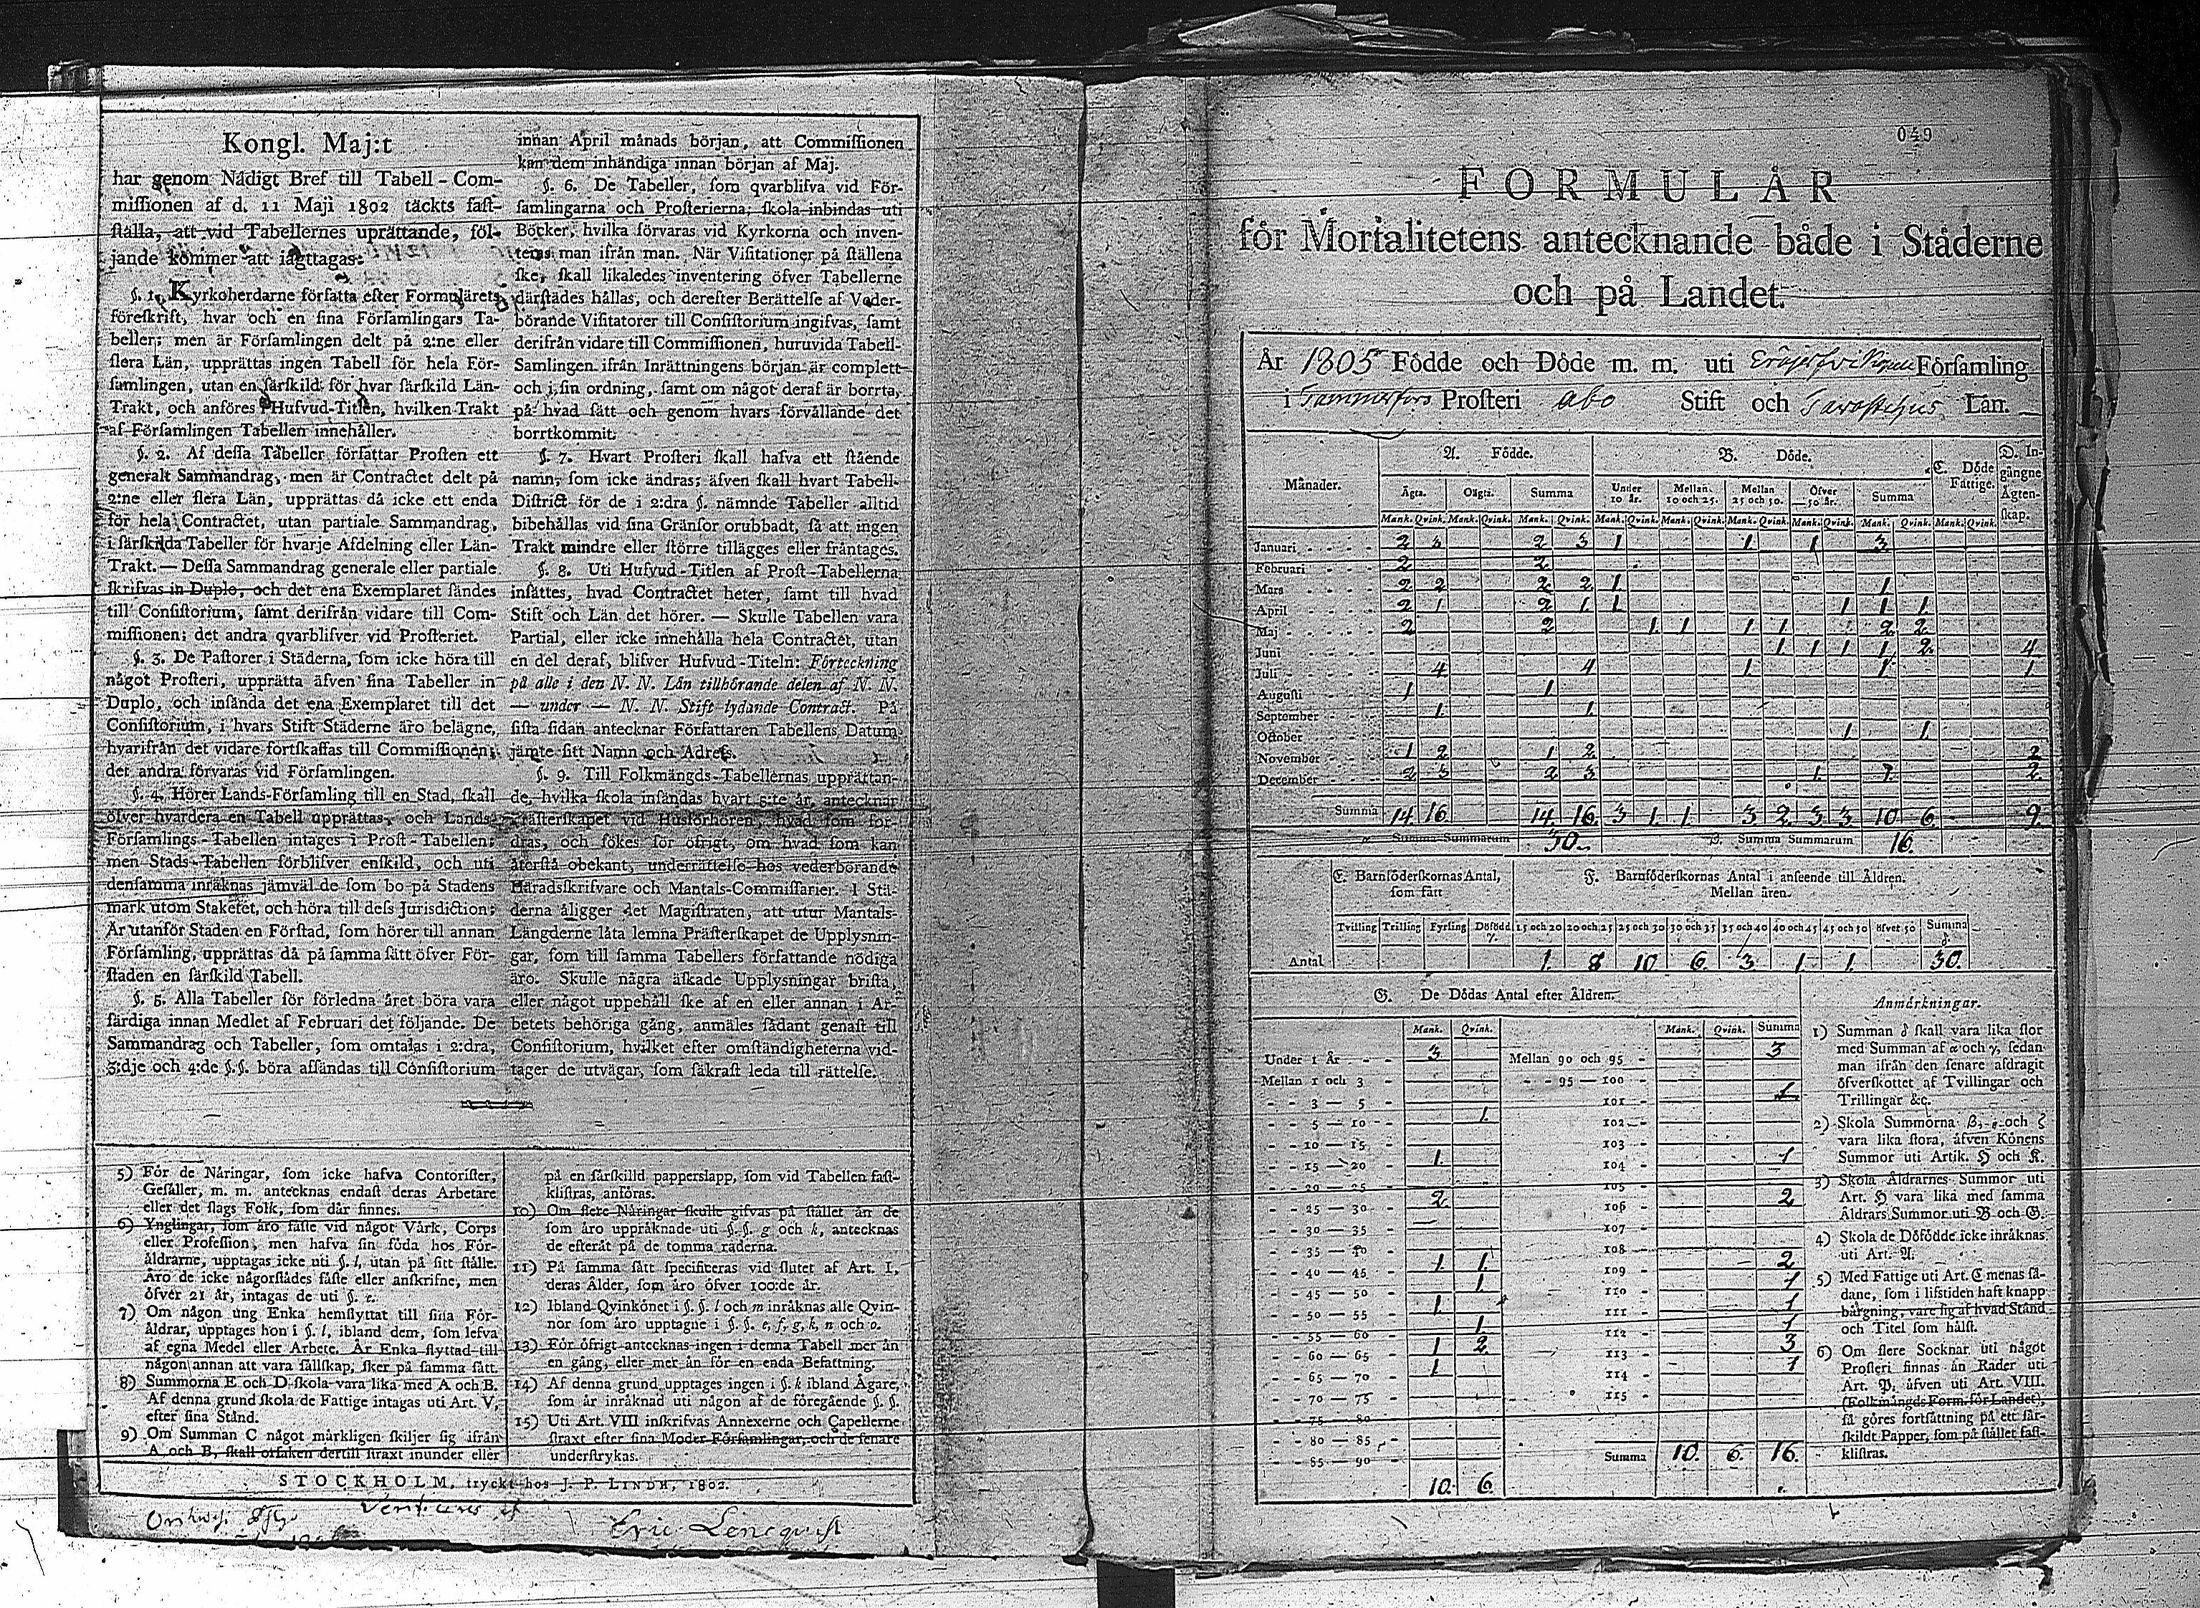 Kongl. Maj:t
har genom Nådigt Bref till Tabell-Com-
missionen af d. 11 Maji 1802 täckts fast-
ställa, att vid Tabellernes uprättande, föl-
jande kommer att iagttagas:
§. 1. Kyrkoherdarne författa efter Formulärets
föreskrift, hvar och en sina Församlingars Ta-
beller; men är Församlingen delt på 2:ne eller
flera Län, upprättas ingen Tabell för hela För-
samlingen, utan en särskild för hvar särskild Län-
Trakt, och anföres i Hufvud-Titlen, hvilken Trakt
af Församlingen Tabellen innehåller.
§. 2. Af dessa Tabeller författar Prosten ett
generalt Sammandrag, men är Contractet delt på
2:ne eller flera Län, upprättas då icke ett enda
för hela Contractet, utan partiale Sammandrag,
i särskilda Tabeller för hvarje Afdelning eller Län-
Trakt. — Dessa Sammandrag generale eller partiale
skrifvas in Duplo, och det ena Exemplaret sändes
till Consistorium, samt derifrån vidare till Com-
missionen; det andra qvarblifver vid Prosteriet.
§. 3. De Pastorer i Städerna, som icke höra till
något Prosteri, upprätta äfven sina Tabeller in
Duplo, och insända det ena Exemplaret till det
Consistorium, i hvars Stift Städerne äro belägne,
hvarifrån det vidare fortskaffas till Commissionen;
det andra förvaras vid Församlingen.
§. 4. Hörer Lands-Församling till en Stad, skall
öfver hvardera en Tabell upprättas, och Lands-
Församlings-Tabellen intages i Prost-Tabellen;
men Stads-Tabellen förblifver enskild, och uti
densamma inräknas jämväl de som bo på Stadens
mark utom Staketet, och höra till dess Jurisdiction;
Är utanför Staden en Förstad, som hörer till annan
Församling, upprättas då på samma sätt öfver För-
staden en särskild Tabell.
§. 5. Alla Tabeller för förledna året böra vara
färdiga innan Medlet af Februari det följande. De
Sammandrag och Tabeller, som omtalas i 2:dra,
3:dje och 4:de §.§. böra afsändas till Consistorium
innan April månads början, att Commissionen
kan dem inhändiga innan början af Maj.
§. 6. De Tabeller, som qvarblifva vid För-
samlingarna och Prosterierna, skola inbindas uti
Böcker, hvilka förvaras vid Kyrkorna och inven-
teras man ifrån man. När Visitationer på ställena
ske, skall likaledes inventering öfver Tabellerne
därstädes hållas, och derefter Berättelse af Veder-
börande Visitatorer till Consistorium ingifvas, samt
derifrån vidare till Commissionen, huruvida Tabell-
Samlingen ifrån Inrättningens början är complett
och i sin ordning, samt om något deraf är borrta,
på hvad sätt och genom hvars förvållande det
borrtkommit.
§. 7. Hvart Prosteri skall hafva ett stående
namn, som icke ändras; äfven skall hvart Tabell-
District för de i 2:dra §. nämnde Tabeller alltid
bibehållas vid sina Gränsor orubbadt, så att ingen
Trakt mindre eller större tillägges eller fråntages.
§. 8. Uti Hufvud-Titlen af Prost-Tabellerna
insättes, hvad Contractet heter, samt till hvad
Stift och Län det hörer. — Skulle Tabellen vara
Partial, eller icke innehålla hela Contractet, utan
en del deraf, blifver Hufvud-Titeln: Förteckning
på alle i den N. N. Län tillhörande delen af N. N.
— under — N. N. Stift lydande Contract. På
sista sidan antecknar Författaren Tabellens Datum
jämte sitt Namn och Adress.
§. 9. Till Folkmängds-Tabellernas upprättan-
de, hvilka skola insändas hvart 5:te år, antecknar
Prästerskapet vid Husförhören, hvad som for-
dras, och sökes för öfrigt, om hvad som kan
återstå obekant, underrättelse hos vederbörande
Häradsskrifvare och Mantals-Commissarier. I Stä-
derna åligger det Magistraten, att utur Mantals-
Längderne låta lemna Prästerskapet de Upplysnin-
gar, som till samma Tabellers författande nödiga
äro. Skulle några äskade Upplysningar brista,
eller något uppehåll ske af en eller annan i Ar-
betets behöriga gång, anmäles sådant genast till
Consistorium, hvilket efter omständigheterna vid-
tager de utvägar, som säkrast leda till rättelse.
5) För de Näringar, som icke hafva Contorister,
Gesäller, m. m. antecknas endast deras Arbetare
eller det slags Folk, som där finnes.
6) Ynglingar, som äro fäste vid något Värk, Corps
eller Profession, men hafva sin föda hos För-
äldrarne, upptagas icke uti §. l, utan på sitt ställe.
Äro de icke någorstädes fäste eller anskrifne, men
öfver 21 år, intagas de uti §. e.
7) Om någon ung Enka hemflyttat till sina För-
äldrar, upptages hon i §. l, ibland dem, som lefva
af egna Medel eller Arbete. Är Enka flyttad till
någon annan att vara sällskap, sker på samma sätt.
8) Summorna E och D skola vara lika med A och B.
Af denna grund skola de Fattige intagas uti Art. V,
efter sina Stånd.
9) Om Summan C något märkligen skiljer sig ifrån
A och B, skall orsaken dertill straxt inunder eller
på en särskilld papperslapp, som vid Tabellen fast-
klistras, anföras.
10) Om flere Näringar skulle gifvas på stället än de
som äro uppräknade uti §.§. g och k, antecknas
de efteråt på de tomma raderna.
11) På samma sätt specificeras vid slutet af Art. I,
deras Ålder, som äro öfver 100:de år.
12) Ibland Qvinkönet i §.§. l och m inräknas alle Qvin-
nor som äro upptagne i §.§. e, f, g, k, n och o.
13) För öfrigt antecknas ingen i denna Tabell mer än
en gång, eller mer än för en enda Befattning.
14) Af denna grund upptages ingen i §. k ibland Ägare,
som är inräknad uti någon af de föregående §.§.
15) Uti Art. VIII inskrifvas Annexerne och Capellerne
straxt efter sina Moder-Församlingar, och de senare
understrykas.
STOCKHOLM, tryckt hos J. P. LINDH, 1802.
Eric Lencqvist
049
FORMULÄR
för Mortalitetens antecknande både i Städerne
och på Landet.
År 1805 Födde och Döde m. m. uti Församling
i Tammerfors Prosteri Abo Stift och Tavastehus Län.
Månader. A. Födde. B. Döde. C. Döde Fattige. D. Ingångne Ägtenskap.
Ägta. Oägta. Summa Under 10 år. Mellan 10 och 25. Mellan 25 och 50. Öfver 50 år. Summa
Mank. Qvink. Mank. Qvink. Mank. Qvink. Mank. Qvink. Mank. Qvink. Mank. Qvink. Mank. Qvink. Mank. Qvink. Mank. Qvink.
Januari 2 3 2 3 1 1 1 3
Februari 2 2
Mars 2 2 2 2 1 1
April 2 1 2 1 1 1 1 1
Maj 2 2 1 1 1 1 2 2
Juni 1 1 1 1 2 4
Juli 4 4 1 1 1
Augusti 1 1
September 1 1
October 1 1
November 1 2 1 2 2
December 2 3 2 3 1 1 2
Summa 14 16 14 16 3 1 1 3 2 3 3 10 6 9
Summa Summarum 30 Summa Summarum 16
E. Barnföderskornas Antal, som fått
F. Barnföderskornas Antal i anseende till Åldren. Mellan åren.
Tvilling Trilling Fyrling Dödfödd 15 och 20 20 och 25 25 och 30 30 och 35 35 och 40 40 och 45 45 och 50 öfver 50 Summa
Antal 1 8 10 6 3 1 1 30
G. De Dödas Antal efter Åldren.
Mank. Qvink. Mank. Qvink. Summa
Under 1 År 3 Mellan 90 och 95 3
Mellan 1 och 3 95 — 100
3 — 5 101 1
5 — 10 1 102
10 — 15 103
15 — 20 1 104 1
20 — 25 105
25 — 30 2 106 2
30 — 35 107
35 — 40 108
40 — 45 1 1 109 2
45 — 50 1 110 1
50 — 55 1 111 1
55 — 60 1 112 1
60 — 65 1 2 113 3
65 — 70 1 114 1
70 — 75 115
75 — 80
80 — 85
85 — 90 Summa 10 6 16
10 6
Anmärkningar.
1) Summan δ skall vara lika stor
med Summan af α och γ, sedan
man ifrån den senare afdragit
öfverskottet af Tvillingar och
Trillingar &c.
2) Skola Summorna β, ε och ζ
vara lika stora, äfven Könens
Summor uti Artik. H och K.
3) Skola Åldrarnes Summor uti
Art. H vara lika med samma
Åldrars Summor uti B och G.
4) Skola de Döfödde icke inräknas
uti Art. A.
5) Med Fattige uti Art. C menas så-
dane, som i lifstiden haft knapp
bärgning, vare sig af hvad Stånd
och Titel som hälst.
6) Om flere Socknar uti något
Prosteri finnas än Rader uti
Art. P, äfven uti Art. VIII.
(Folkmängds Form. för Landet),
så göres fortsättning på ett sär-
skildt Papper, som på stället fast-
klistras.